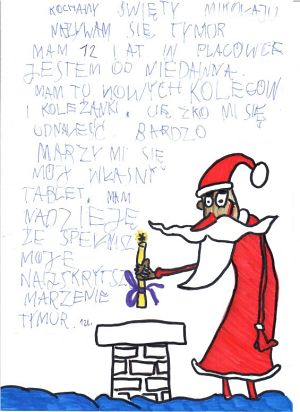 KOCHANY ŚWIĘTY MIKOŁAJU
NAZYWAM SIĘ TYMUR
MAM 12 LAT W PLACÓWCE
JESTEM OD NIEDAWNA.
MAM TU NOWYCH KOLEGÓW
I KOLEŻANKI. CIĘŻKO MI SIĘ
ODNALEŹĆ. BARDZO
MARZY MI SIĘ
MÓJ WŁASNY
TABLET. MAM
NADZIEJĘ
ŻE SPEŁNISZ
MOJE
NAJSKRYTSZE
MARZENIE
TYMUR. 12L.